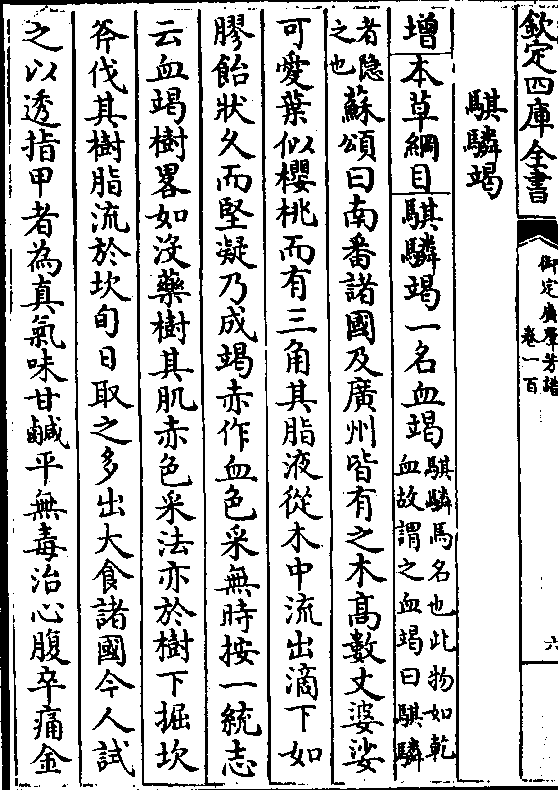 欽定四庫全書
御定廣羣芳譜
卷一百
六
騏驎竭
增本草綱目騏驎竭一名血竭騏驎馬名也此物如乾
血故謂之血竭曰騏驎
者隐
之也蘇頌曰南番諸國及廣州皆有之木高數丈婆娑
可愛葉似櫻桃而有三角其脂液從木中流出滴下如
膠飴狀久而堅凝乃成竭赤作血色采無時按一統志
云血竭樹畧如没藥樹其肌赤色采法亦於樹下掘坎
斧伐其樹脂流於坎旬日取之多出大食諸國今人試
之以透指甲者為真氣味甘鹹平無毒治心腹卒痛金